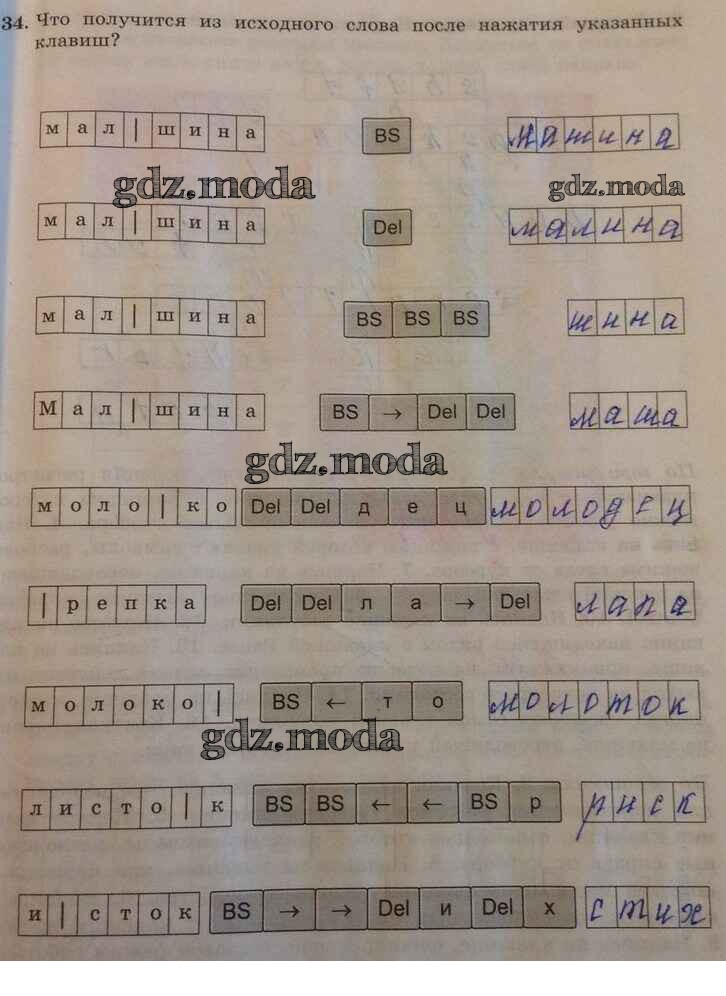 34. Что получится из исходного слова после нажатия указанных
клавиш?
мал|шина BS машина
gdz.moda gdz.moda
мал|шина Del малина
мал|шина BS BS BS шина
Мал|шина BS → Del Del маша
gdz.moda
моло|ко Del Del д е ц молодец
|репка Del Del л а → Del лапа
молоко| BS ← т о молоток
gdz.moda
листо|к BS BS ← ← BS р риск
и|сток BS → → Del и Del х стих